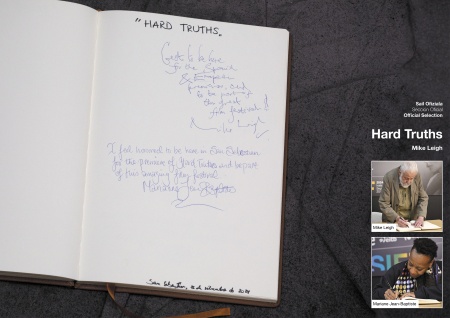 "HARD TRUTHS"
Great to be here
for the Spanish
& European
première, and
to be part of
this great
film festival!
Mike Leigh
I feel honoured to be here in San Sebastian
for the premiere of Hard Truths and be part
of this amazing film festival
Marianne Jean-Baptiste
San Sebastián, de setiembre de 2024
Sail Ofiziala
Sección Oficial
Official Selection
Hard Truths
Mike Leigh
Mike Leigh
Mariane Jean-Baptiste